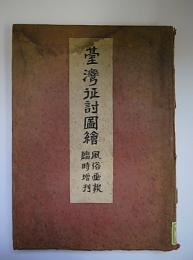 臺灣征討圖繪
風俗畫報
臨時增刊